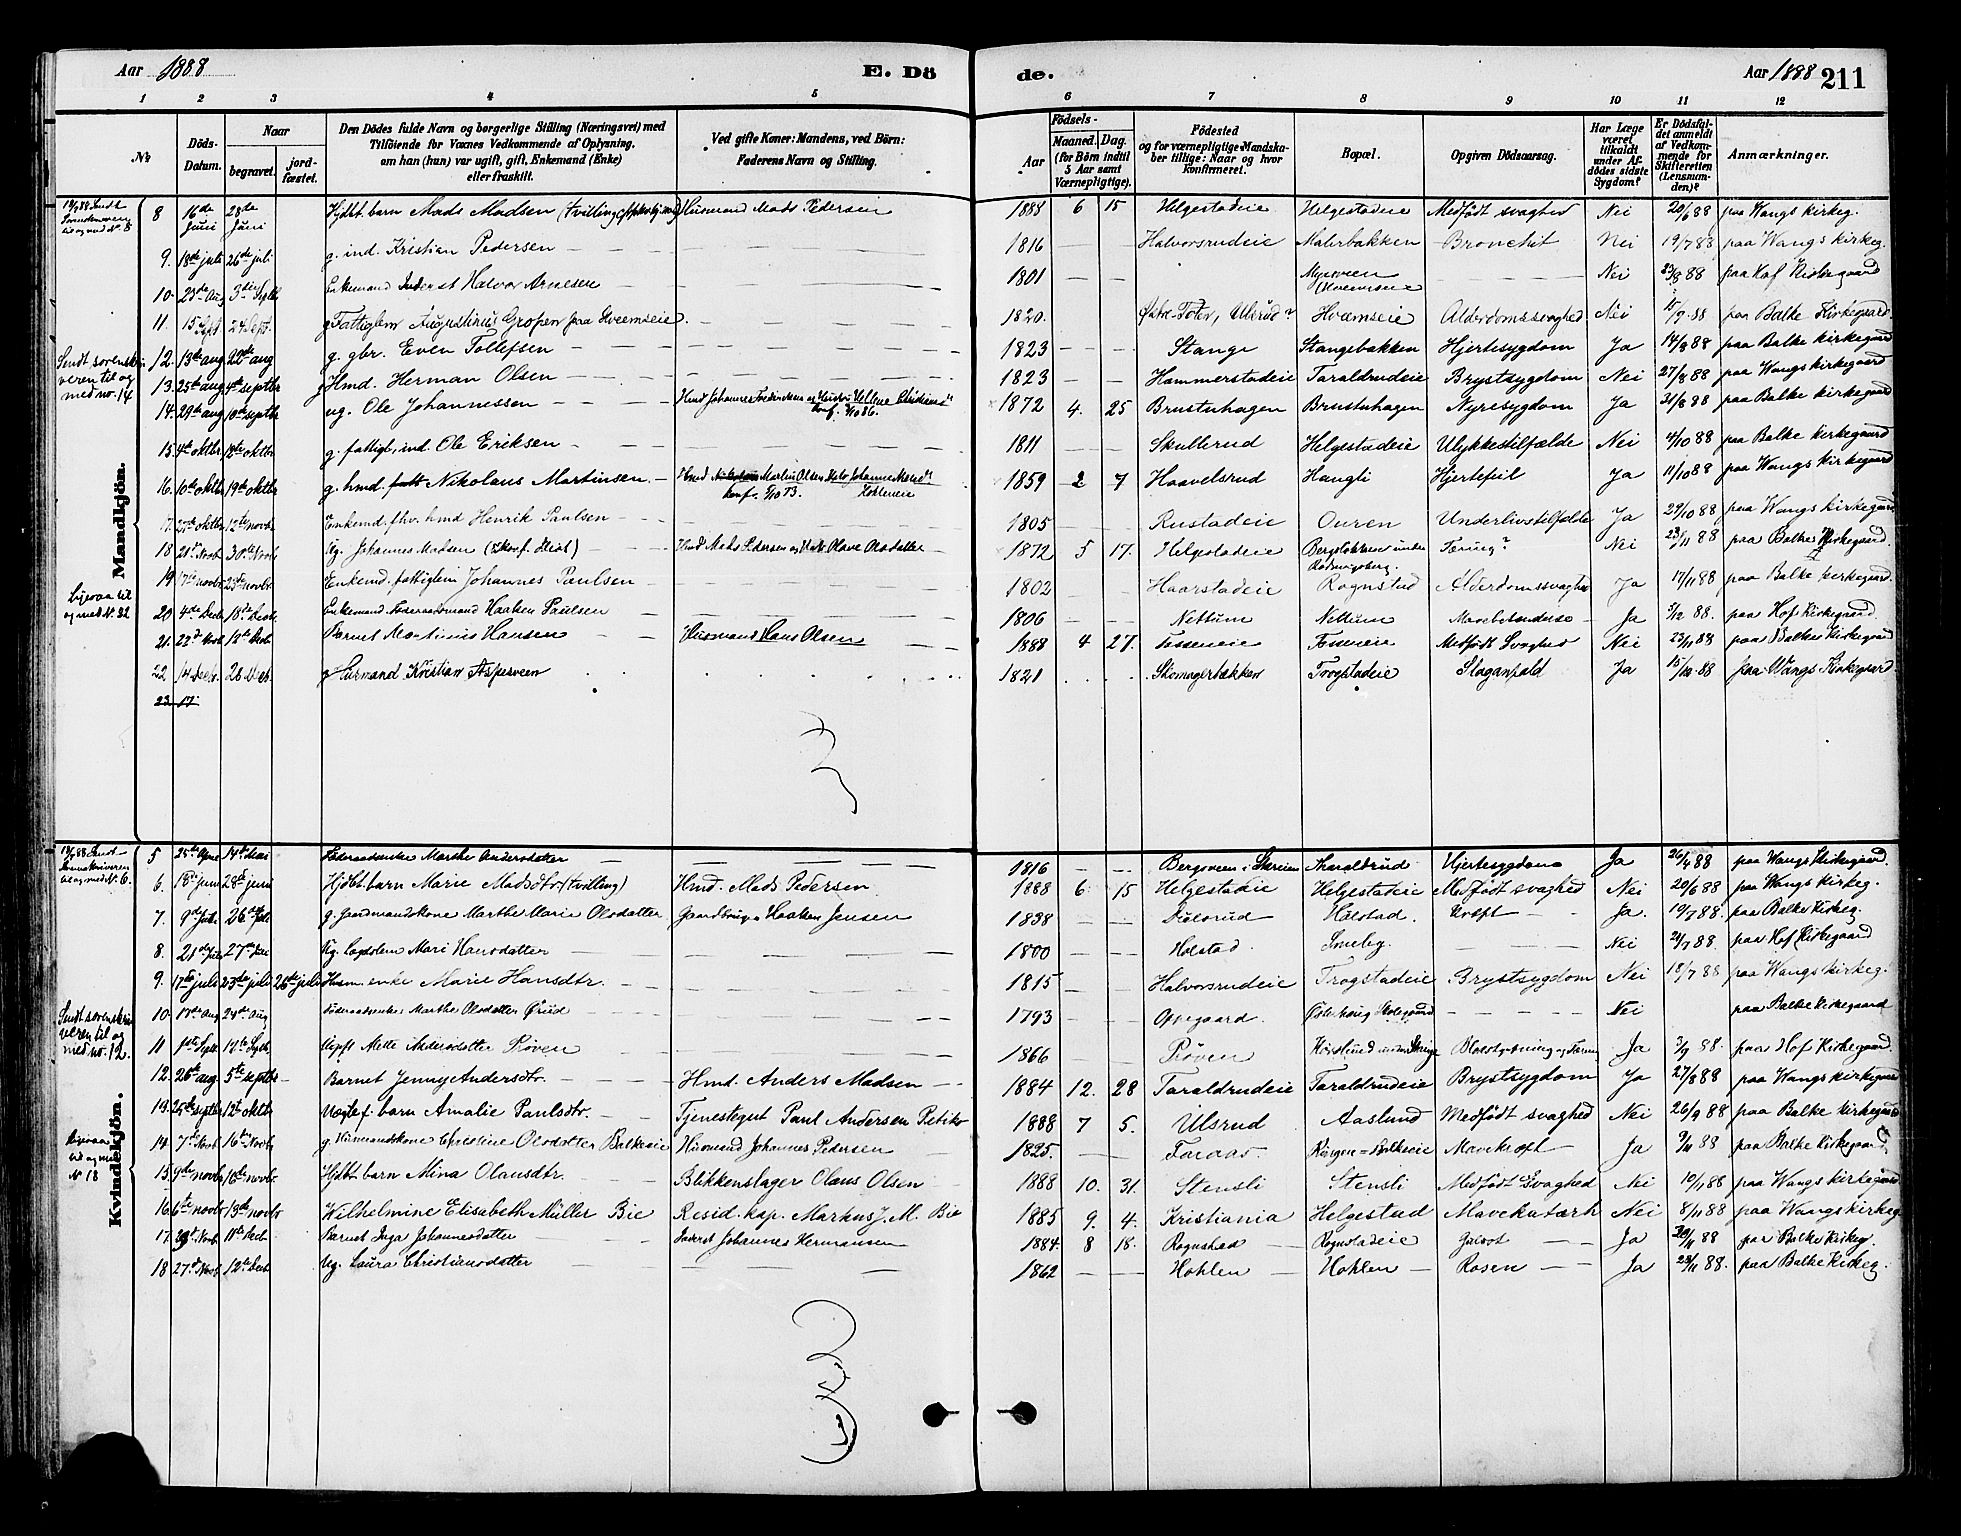 Aar 1888 E. Dö de. Aar 1888 211
1 2 3 4 5 6 7 8 9 10 11 12
No. Döds-Datum. Naar begravet. jordfæstet. Den Dödes fulde Navn og borgerlige Stilling (Næringsvei) med Tilföiende for Voxnes Vedkommende af Oplysning, om han (hun) var ugift, gift, Enkemand (Enke) eller fraskilt. Ved gifte Koner: Mandens, ved Börn: Faderens Navn og Stilling. Födsels- Aar Maaned. Dag. (for Börn indtil 5 Aar samt Værnepligtige). Födested og for værnepligtige Mandskaber tillige: Naar og hvor konfirmeret. Bopæl. Opgiven Dödsaarsag. Har Læge været tilkaldt under Afdödes sidste Sygdom? Er Dödsfaldet anmeldt af Vedkommende for Skifteretten (Lensmanden)? Anmærkninger.
Mandkjön.
8 16de Juni 28de Juni Hjdbt. barn Mads Madsen (tvilling) Husmand Mads Pedersen 1888 6 15 Helgestadeie Helgestadeie Medfödt svaghed Nei 20/6 88 paa Wangs kirkeg.
9. 18de juli 26de juli g. ind. Kristian Pedersen 1816 Halvorsrudeie Malerbakken Bronchit Nei 19/7 88 paa Wangs kirkeg.
10. 23de Aug 3die Septb. Enkemand Inderst Halvor Arnesen 1801 Nei 23/8 88 paa Hof Kirkegaard
11. 15 Sept. 24 Sept. g Fattiglem Augustinus Gropen fra Hveemseie 1820. Östre Toten, Ulsrud? Hvæmseie Alderdomssvaghed Nei 15/9 88 paa Balke Kirkegaard.
Sendt sorenskriveren til og med no. 14
12. 13de aug 22de aug g. gbr. Even Tollefsen 1823 Stange Stangebakken Hjertesygdom Ja 14/8 88 paa Balke kirkegaard
13. 25de aug 4de septbr g Hmd. Herman Olsen 1823 Hammerstadeie Taraldrudeie Brystsygdom Nei 27/8 88 paa Wangs kirkegaard
14. 29de aug 10de septbr ug. Ole Johannessen 1872 4. 25 Brustuhagen Brustuhagen Nyresygdom Ja 31/8 88 paa Balke kirkegaard
15. 4de oktbr. 18de oktbr g. fattigl. ind. Ole Eriksen 1811 Skullerud Helgestadeie Ulykkestilfælde Nei 4/10 88 paa Balke kirkegaard
16. 10de oktbr 19de oktbr g. hmd. Nikolaus Martinsen. 1859 2 7 Haavelsrud Haugli Hjertefeil Ja 11/10 88 paa Wangs kirkegaard
17. 27de oktbr 12te novbr. Enkemd. fhv. hmd Henrik Paulsen 1805 Rustadeie Ouren Underlivstilfælde Ja 29/10 88 paa Wangs kirkegaard
18 21de Novb 30te Novb. Ug. Johannes Madsen Hmd Mads Pedersen og Hustr. Olave Olsdatter 1872 5 17. Helgestadeie Tæring? Nei 23/11 88 paa Balke Kirkegaard.
19 17de novbr 23de novbr. Enkemd. fattiglem Johannes Paulsen 1802 Haarstadeie Rognstad Alderdomssvaghed Ja 17/11 88 paa Balke kirkegaard.
20 4de Decb 18de Decb. Enkemand Föderaadsmand Haaken Paulsen 1806 Nettum Nettum Mavebetændelse Ja 5/12 88. paa Hof Kirkegaard
21. 22de Novb 12te Decb. Barnet Martinius Hansen Husmand Hans Olsen 1888 4 27. Fosseneie Fosseneie Medfödt Svaghed Nei 23/11 88 paa Balke Kirkegaard
22. 14 Decb. 28 Decb. g Husmand Kristian Asperveen 1821 Skomagerbakken Trogstadeie Slaganfald Ja 15/12 88 paa Wangs Kirkegaard.
23. 17.
Kvindekjön.
5 25de April 14de Mai Föderaadsenke Marthe Andersdatter 1816 Bergsveen i Skreien Tharaldrud Hjertesygdom Ja 26/4 88 paa Wangs Kirkegaard.
6. 18de juni 28de juni Hjdbt. barn Marie Madsdtr (tvilling) Hmd. Mads Pedersen 1888 6 15 Helgestadeie Helgestadeie Medfödt svaghed Nei 20/6 88 paa Wangs kirkeg.
7. 9de Juli 26de Juli g. Gaardmandskone Marthe Marie Olsdatter Gaardbruger Haaken Jensen 1838 Dulsrud Holstad. Kræft Ja. 19/7 88. paa Balke Kirkeg.
8. 21de Juli 27de Juli Ug. Lægdslem Mari Hansdatter 1800 Holstad. Smeby. Nei 21/7 88. paa Hof Kirkegaard
9. 17de juli 23de juli 26de juli Husm. enke Marie Hansdtr. 1815 Halvorsrudeie Trogstadeie Brystsygdom Nei 18/7 88 paa Wangs kirkeg.
Sendt sorenskriveren til og med no. 12.
10. 17de aug 29de aug Föderaadsenke Marthe Olsdatter 1793 Oppegaard. Nei paa Balke Kirkegaard
11 1ste Septb. 12te Septb. Ugift Mette Andersdatter Pröven 1866 Pröven Ja 3/9 88. paa Hof Kirkegaard.
12. 26de aug. 5te septbr Barnet Jenny Andersdtr. Hmd. Anders Madsen 1884 12. 28 Taraldrudeie Taraldrudeie Brystsygdom Ja 27/8 88 paa Wangs Kirkegaard
13. 25de septbr 12te oktbr Uægtef. barn Amalie Paulsdtr. Tjenestegut Paul Andersen 1888 7 5. Ulsrud Aaslund Medfödt svaghed Nei 26/9 88 paa Balke kirkegaard
14. 7de Novb. 16de Novb. g. Husmandskone Christine Olsdatter Balkeeie Husmand Johannes Pedersen 1825. Faraas Mavekræft Ja 9/11 88 paa Balke Kirkegaard
15. 9de novbr 16de novbr. Hjdbt barn Mina Olausdtr. Blikkenslager Olaus Olsen 1888 10. 31. Stensli Stensli Medfödt Svaghed Nei 10/11 88 paa Wangs Kirkegaard
16. 6te novbr 13de novbr Wilhelmine Elisabeth Müller Bie Resid. kap. Markus J. M. Bie 1885 9. 4. Kristiania Helgestad Mavekatarh Nei 8/11 88 paa Wangs kirkeg.
17. Novb. 11te Decb. Barnet Inga Johannesdatter Inderst Johannes Hermansen 1884. 8 18. Rognstad Rognstadeie Ja 30/11 88 paa Balke Kirkeg.
18 27de Novb. 12te Decb Ug. Laura Christiansdatter 1862 Hohlen Hohlen Rosen Ja 28/11 88. paa Balke Kirkeg.